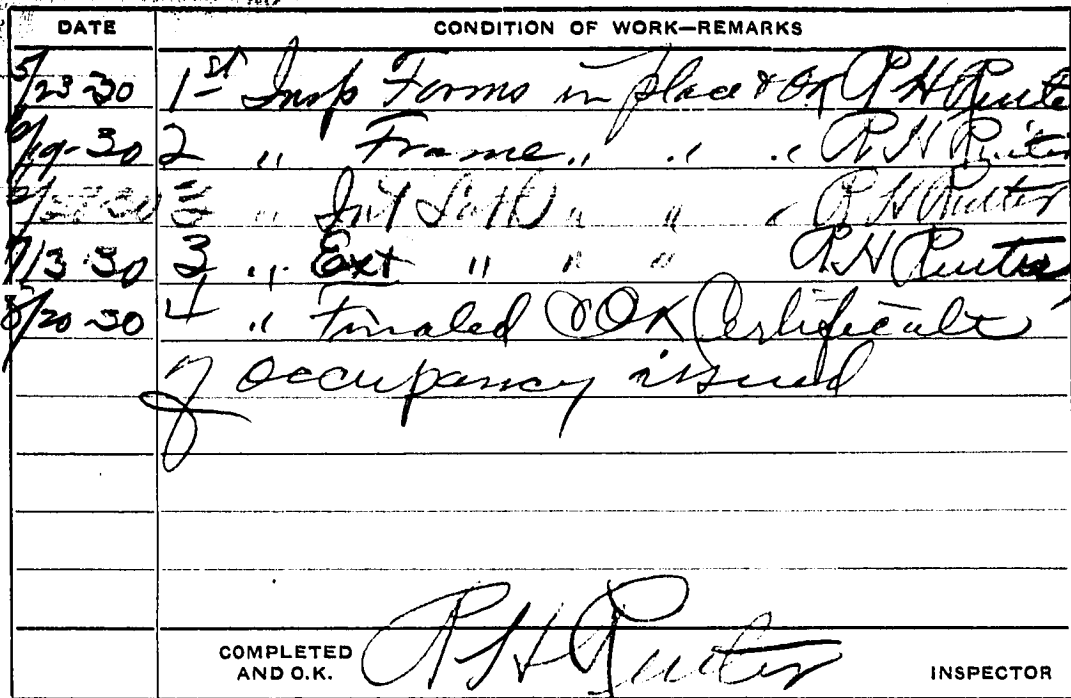 DATE CONDITION OF WORK—REMARKS
5/23-30 1st Insp Forms in place & OK R H Ruiter
6/19-30 2 " Frame " " " R H Ruiter
" Int Lath " " " R H Ruiter
7/3-30 3 " Ext " " " R H Ruiter
8/20-30 4 " Finaled & OK Certificate
of occupancy issued
COMPLETED AND O.K. R H Ruiter INSPECTOR